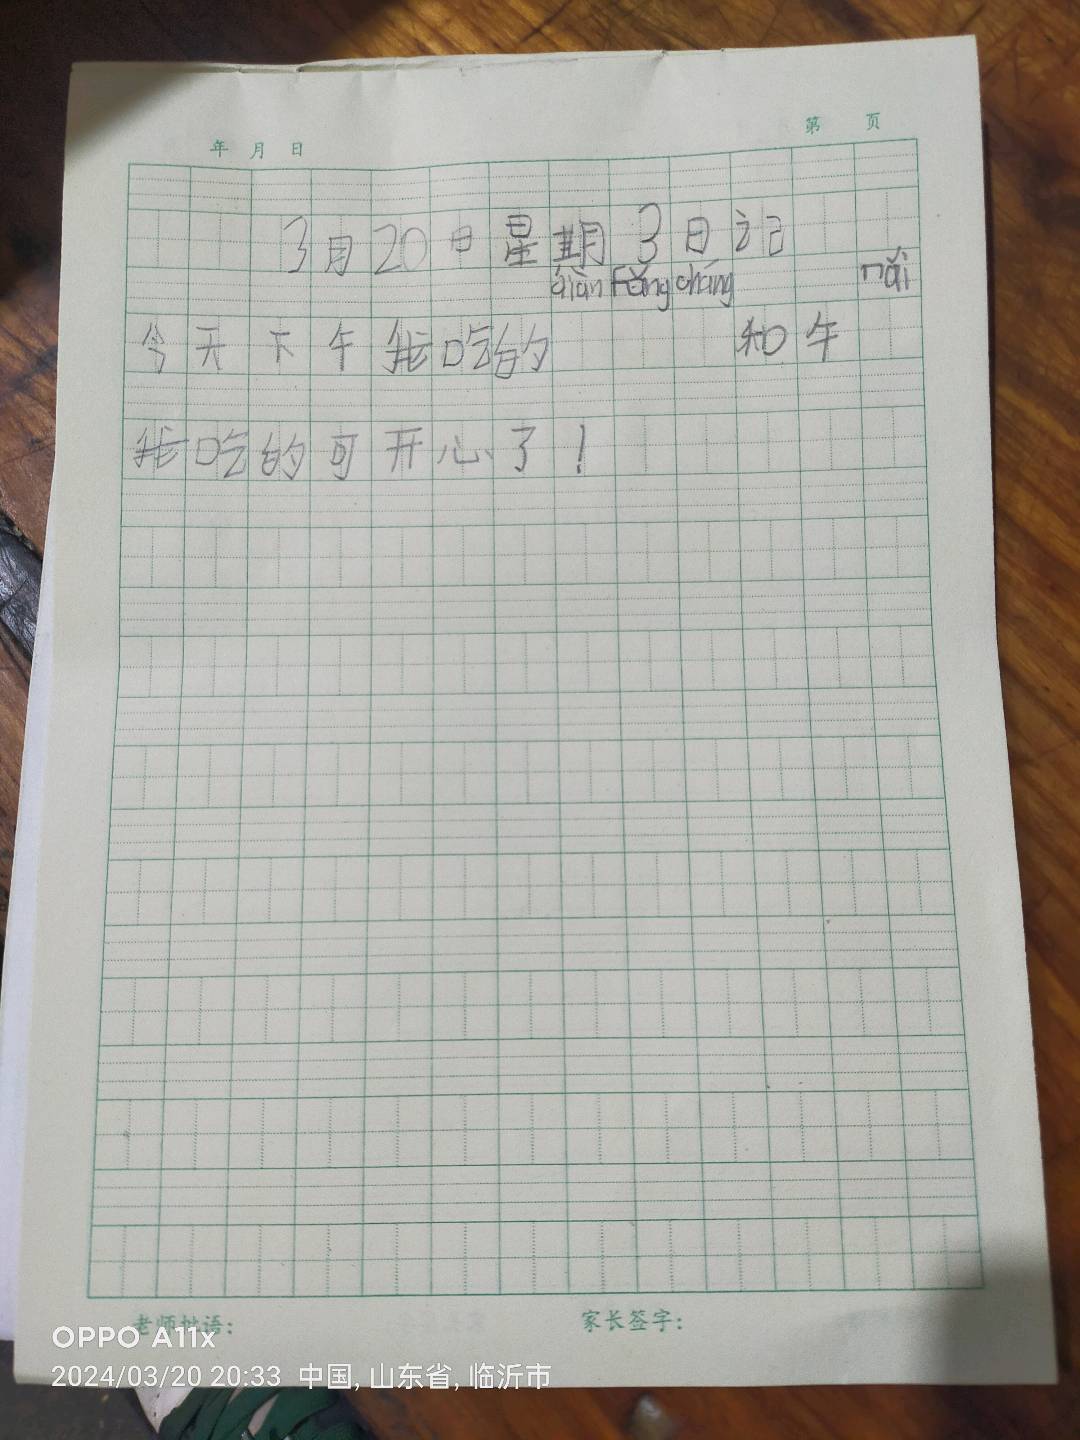 年 月 日
第 页
3月20日星期3日记
qiàn Fāng cháng nǎi
今天下午我吃的 和午
我吃的可开心了!
老师批语: 家长签字:
OPPO A11x
2024/03/20 20:33 中国, 山东省, 临沂市